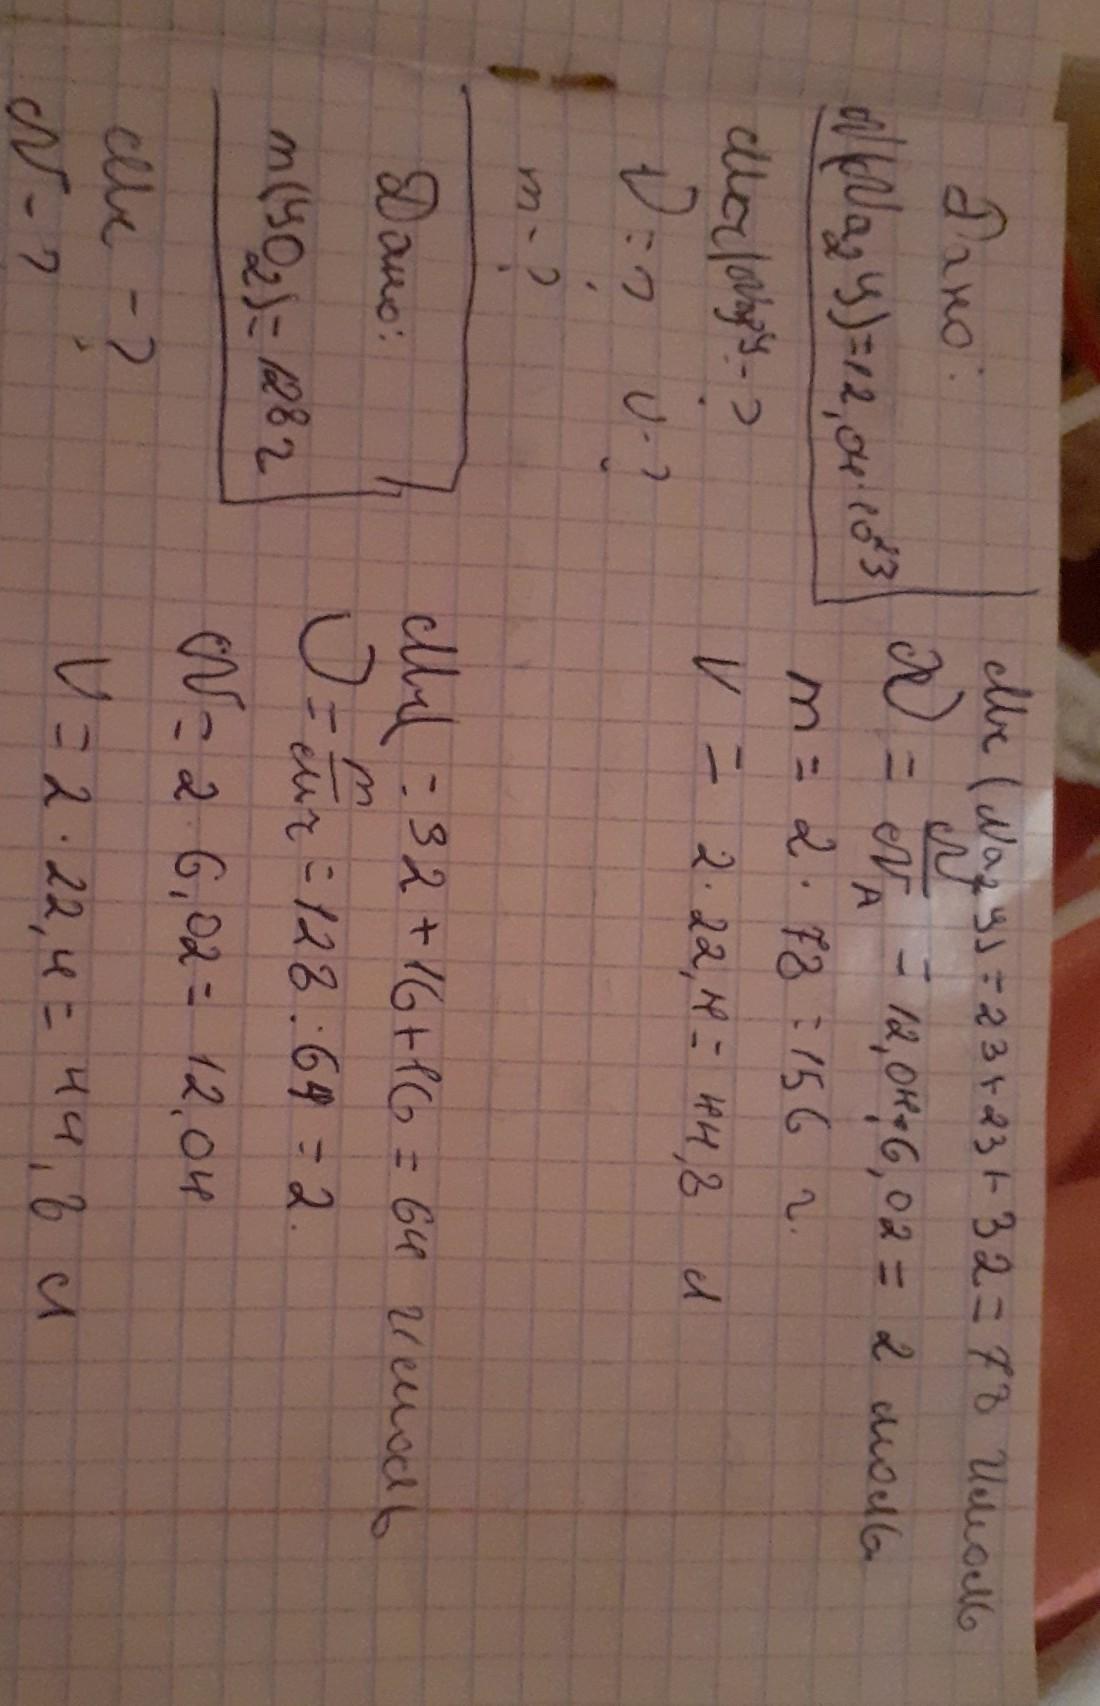 Дано:
N(Na₂S)=12,04·10²³
Mr(Na₂S)-?
ν=? V-?
m-?
Mr(Na₂S)=23+23+32=78 г/моль
ν = N/N_A = 12,04:6,02 = 2 моль
m = 2·78 = 156 г.
V = 2·22,4 = 44,8 л
Дано:
m(SO₂)=128г
Mr -?
N-?
Mr = 32+16+16 = 64 г/моль
ν = m/Mr = 128:64 = 2.
N = 2·6,02 = 12,04
V = 2·22,4 = 44,8 л